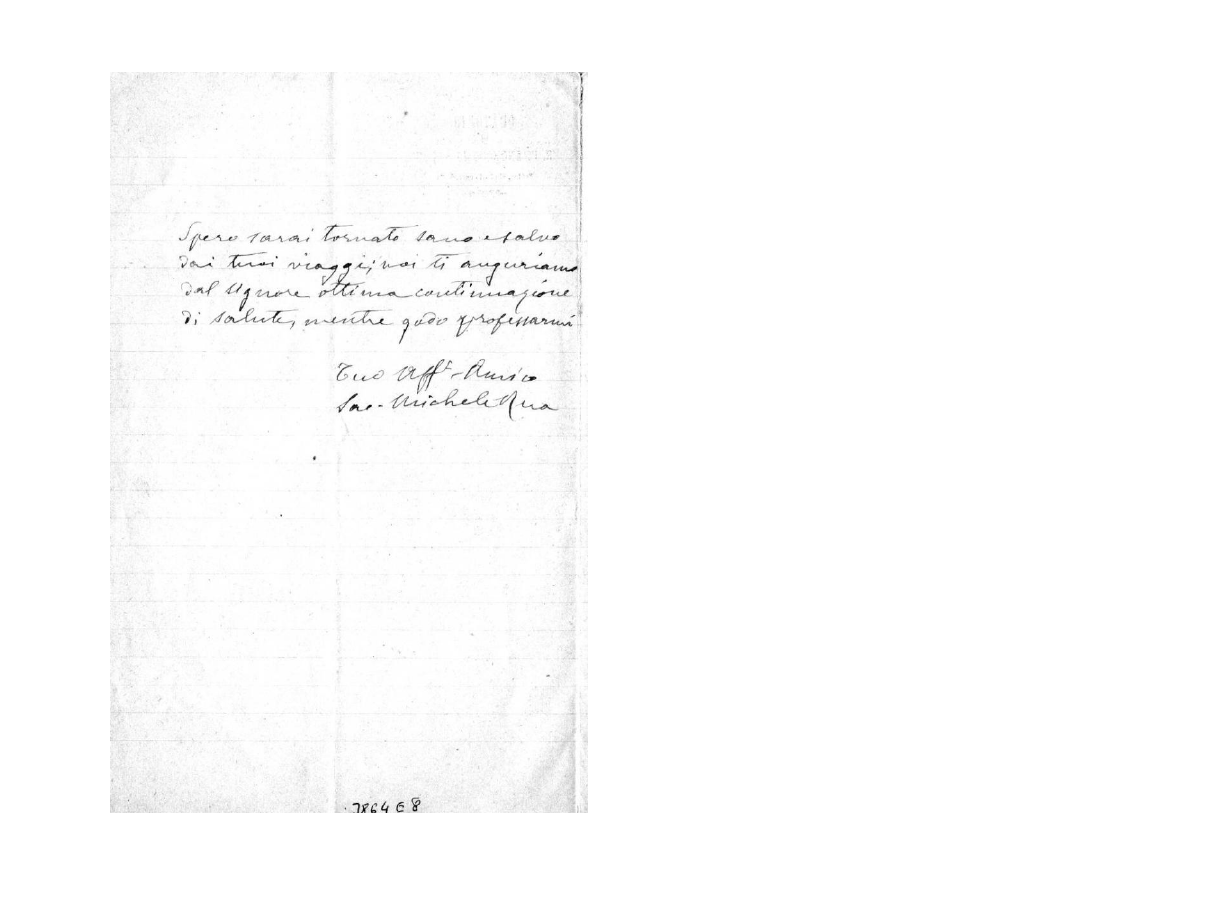 Spero sarai tornato sano e salvo
dai tuoi viaggi; noi ti auguriamo
dal Signore ottima continuazione
di salute, mentre godo professarmi
Tuo Aff. Amico
Sac. Michele Rua